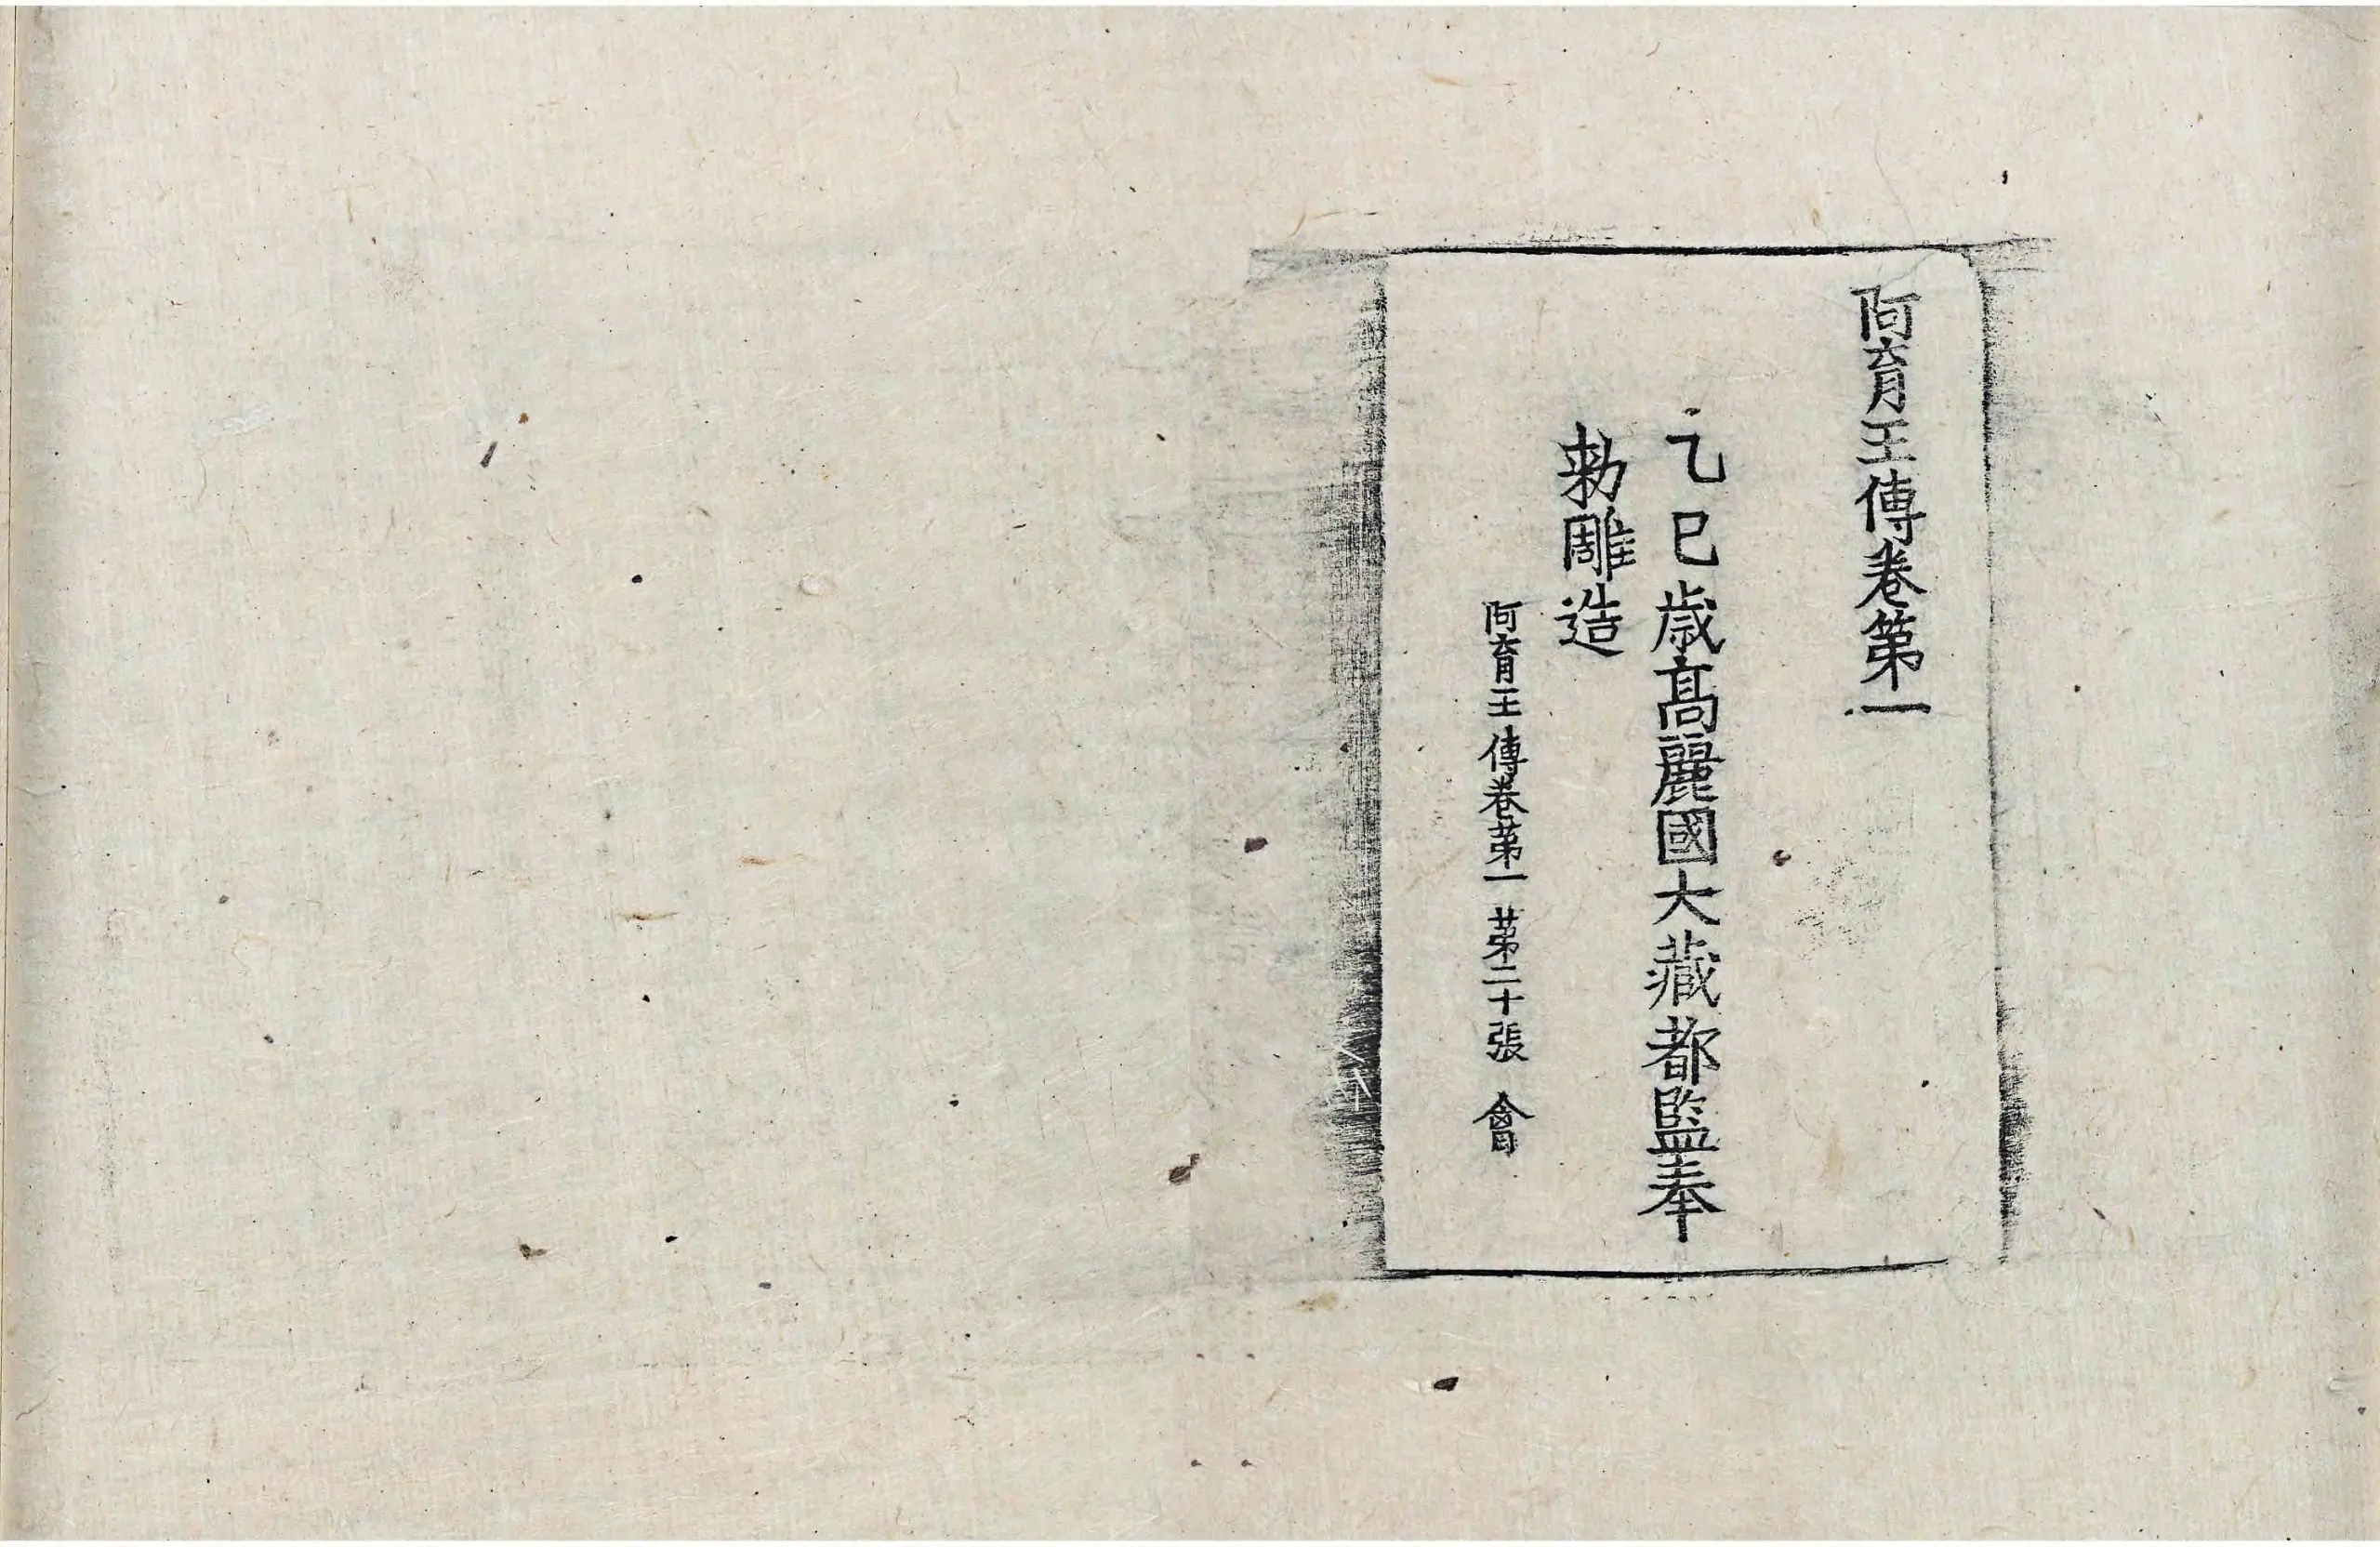 阿育王傳卷第一
乙巳歲高麗國大藏都監奉
勑雕造
阿育王傳卷第一 第二十張 會